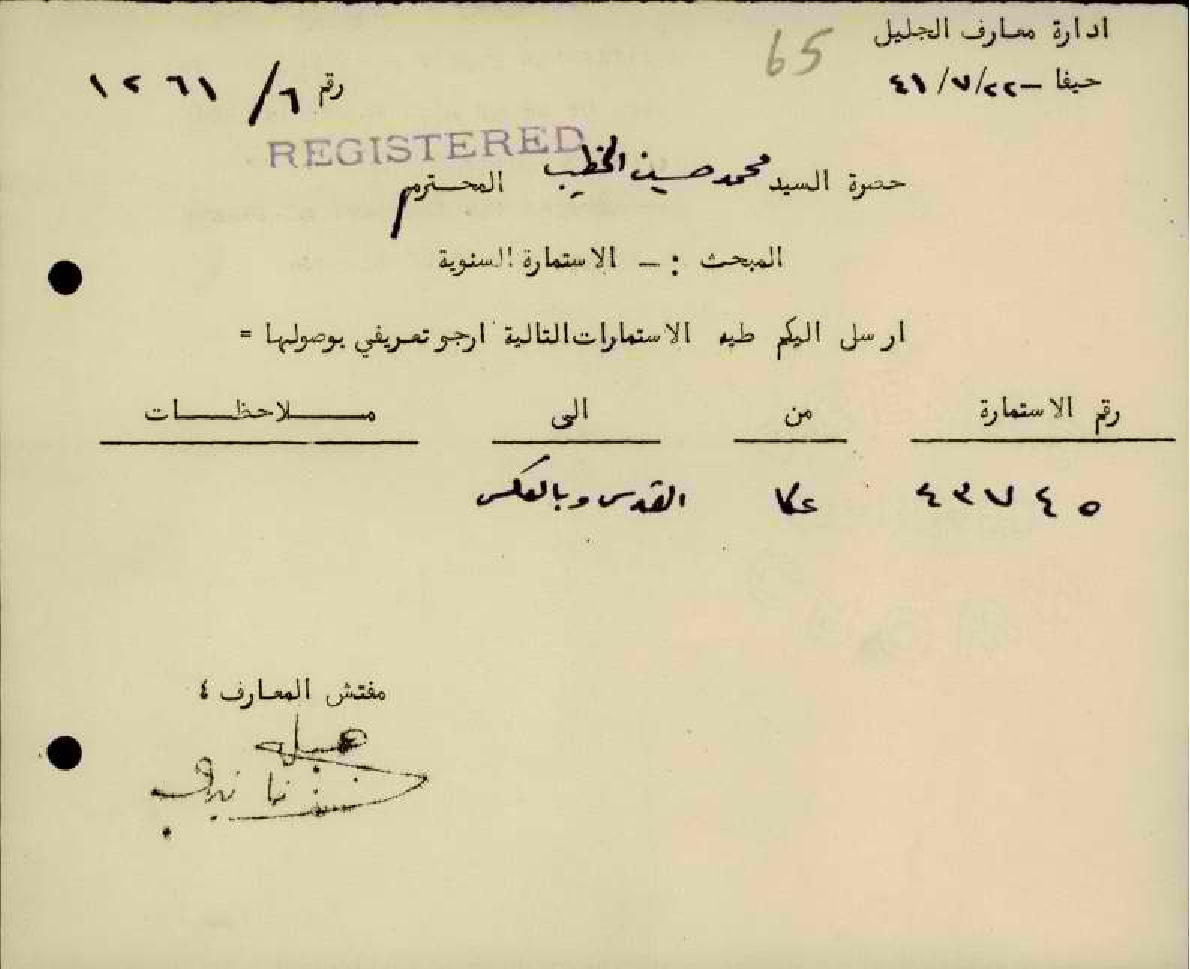 ادارة معارف الجليل
65
حيفا - ٢٢/٧/٤١
رقم ٦/ ١٢٦١
REGISTERED
حضرة السيد محمد حسين الخطيب المحترم
المبحث :- الاستمارة السنوية
ارسل اليكم طيه الاستمارات التالية ارجو تعريفي بوصولها =
رقم الاستمارة من الى مـــلاحظـــات
٤٣٧٤٥ عكا القدس وبالعكس
مفتش المعارف ٤